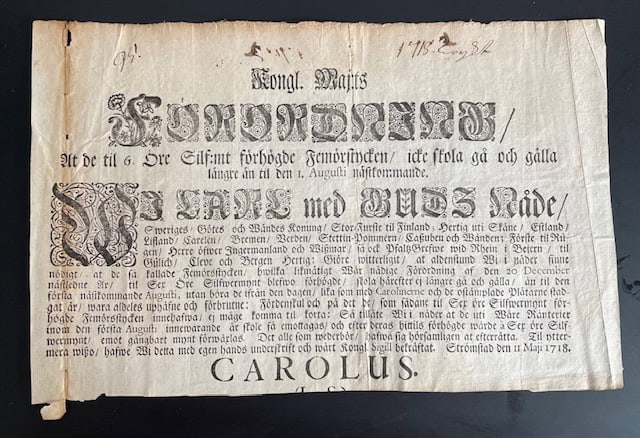 95.
1718.
Kongl. Maj:tz
FÖRORDNING/
At de til 6. Öre Silf:mt förhögde Femörstycken/ icke skola gå och gälla
längre än til den 1. Augusti nästkommande.
WI CARL med GUDS Nåde/
Sweriges/ Götes och Wändes Konung/ Stor-Furste til Finland/ Hertig uti Skåne/ Estland/
Lifland/ Carelen/ Bremen/ Verden/ Stettin-Pommern/ Cassuben och Wänden; Förste til Rü-
gen/ Herre öfwer Ingermanland och Wißmar; så ock Pfaltz-Grefwe wid Rhein i Beijern/ til
Gülich/ Cleve och Bergen Hertig: Giöre witterligit/ at aldenstund Wi i nåder sinne
nödigt/ at de så kallade Femörstycken/ hwilka likmätigt Wår nådiga Förordning af den 20 December
nästledne År/ til Sex Öre Silfwermynt blefwo förhögde/ skola härefter ej längre gå och gälla/ än til den
första nästkommande Augusti, utan böra de ifrån den dagen/ lika som med Carolinerne och de ostämplade Plåtarne stad-
gat är/ wara aldeles uphäfne och förbrutne: Fördenskul och på det de/ som sådane til Sex öre Silfwermynt för-
högde Femörstycken innehafwa/ ej måge komma til korta: Så tillåte Wi i nåder at de uti Wåre Ränterier
inom den första Augusti innewarande år skole få emottagas/ och efter deras hittils förhögde wärde à Sex öre Silf-
wermynt/ emot gångbart mynt förwäxlas. Det alle som wederbör/ hafwa sig hörsamligen at efterrätta. Til ytter-
mera wißo/ hafwe Wi detta med egen hands underskrift och wårt Kongl. Sigill bekräftat. Strömstad den 11 Maji 1718.
CAROLUS.
(L. S.)